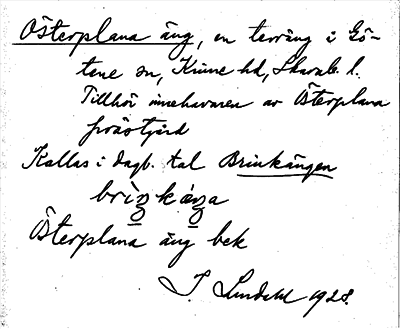 Österplana äng, en terräng i Gö-
tene sn, Kinne hd, Skarab. l.
Tillhör innehavaren av Österplana
prästgård
Kallas i dagl. tal Brinkängen
Österplana äng bek
I. Lundahl 1928.